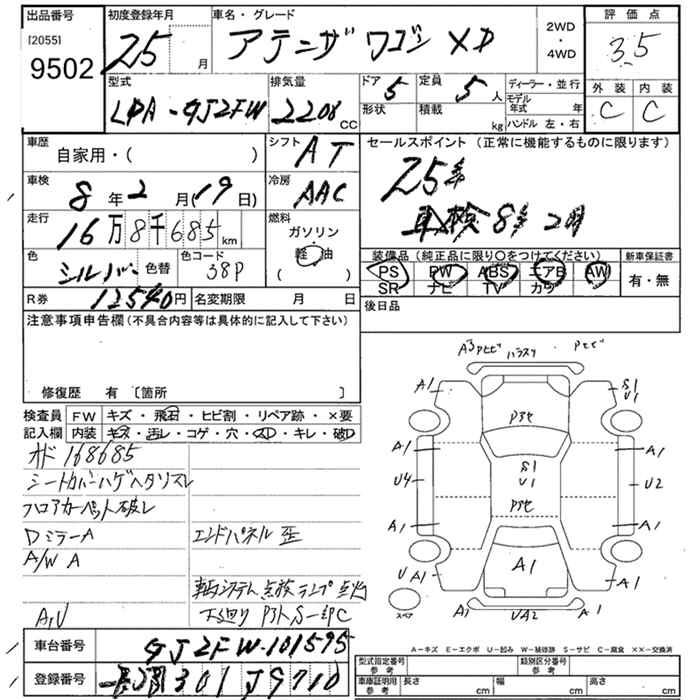 出品番号 初度登録年月 車名・グレード 2WD ・ 4WD 評価点
[2055] 9502 25 月 アテンザ ワゴン XD 3.5
型式 排気量 ドア 5 定員 5 人 ディーラー・並行 外装 内装
LDA-GJ2FW 2208 CC 形状 積載 kg モデル年式 年 ハンドル 左・右 C C
車歴 自家用・( ) シフト AT セールスポイント (正常に機能するものに限ります)
車検 8年2月(19日) 冷房 AAC 25年
走行 16万8千685km 燃料 ガソリン 軽油 車検8年2月
色 シルバー 色替 色コード 38P
装備品 (純正品に限り○をつけてください) 新車保証書
PS PW ABS エアB AW 有・無
SR ナビ TV カワ
R券 12540円 名変期限 月 日 後日品
注意事項申告欄(不具合内容等は具体的に記入して下さい)
修復歴 有 〔箇所 〕
検査員 FW キズ・飛石・ヒビ割・リペア跡・×要
記入欄 内装 キズ・汚レ・コゲ・穴・スレ・キレ・破レ
オド 168685
シートカバーハゲヘタリスレ
フロアカーペット破レ
DミラーA エンドパネル歪
A/W A
システム点検ランプ点灯
A,U 下廻り S-印C
車台番号 GJ2FW-101595
登録番号 301 J9710
A3アセビ ハラスリ Pセビ
A1 S1 U1
P3セ
A1 A1
U4 S1 U1 U2
P3セ
A1 A1
UA1 A1 A1
スペア A1 UA2 A1
A-キズ E-エクボ U-凹み W-補修跡 S-サビ C-腐食 ××-交換済
型式指定番号 参考 類別区分番号 参考
車庫証明用 参考 長さ cm 幅 cm 高さ cm